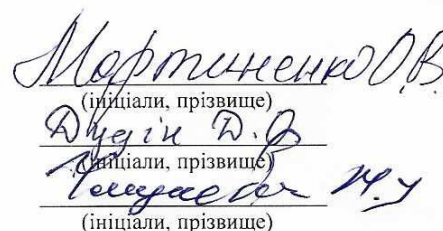 Мартиненко О.В.
(ініціали, прізвище)
Дудін Д.
(ініціали, прізвище)
(ініціали, прізвище)